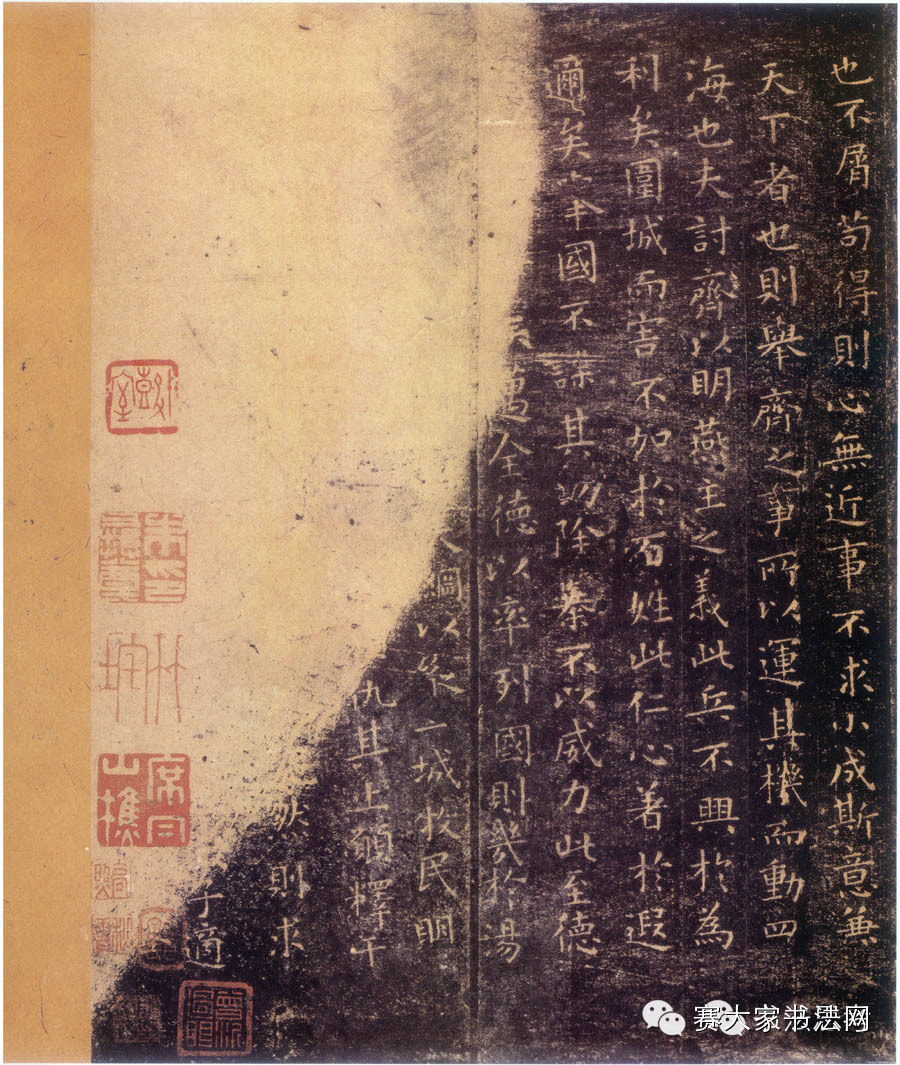 也不屑苟得則心無近事不求小成斯意兼
天下者也則舉齊之事所以運其機而動四
海也夫討齊以明燕主之義此兵不興於為
利矣圍城而害不加於百姓此仁心著於遐
邇矣举國不謀其功除暴不以威力此至德
全德以率列國則幾於湯
綱以縱二城牧民明
仇其上願釋干
則求
于適
賽大家书法网